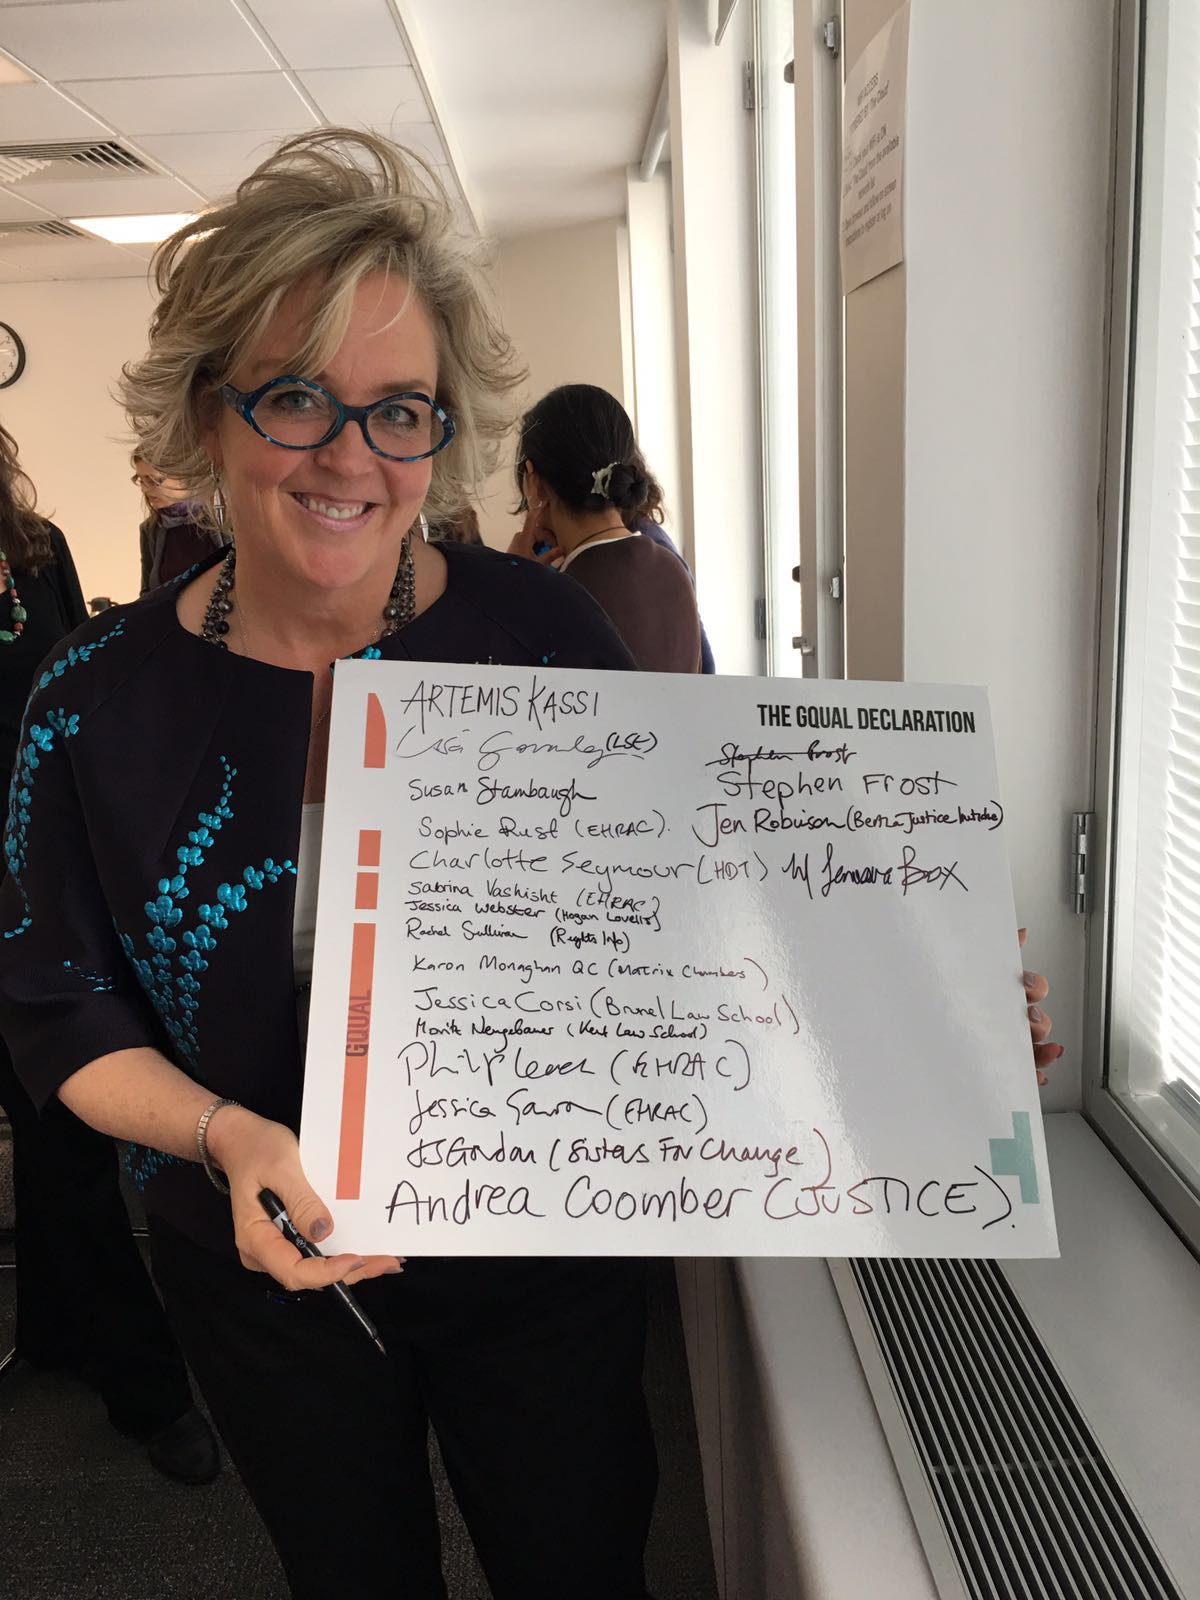 WIFI ACCESS
THE GQUAL DECLARATION
ARTEMIS KASSI
Lisa Gormley (LSE)
Susan Stambaugh
Sophie Rust (EHRAC).
Charlotte Seymour (HDT)
Sabrina Vashisht (EHRAC)
Jessica Webster (Hogan Lovells)
Rachel Sullivan (Rights Info)
Karon Monaghan QC (Matrix Chambers)
Jessica Corsi (Brunel Law School)
Moritz Neugebauer (Kent Law School)
Philip Leach (EHRAC)
Jessica (EHRAC)
Gordon (Sisters For Change)
Andrea Coomber (JUSTICE).
Stephen Frost
Stephen Frost
Jen Robinson (Bertha Justice Initiative)
GQUAL